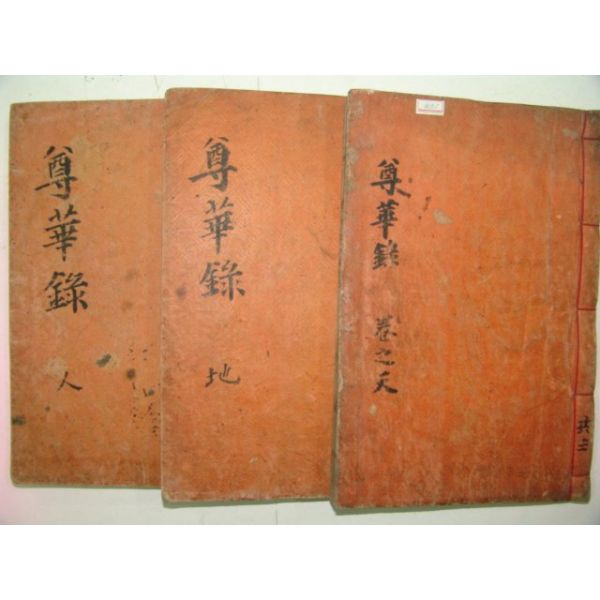 尊華錄
卷之天
尊華錄
地
尊華錄
人